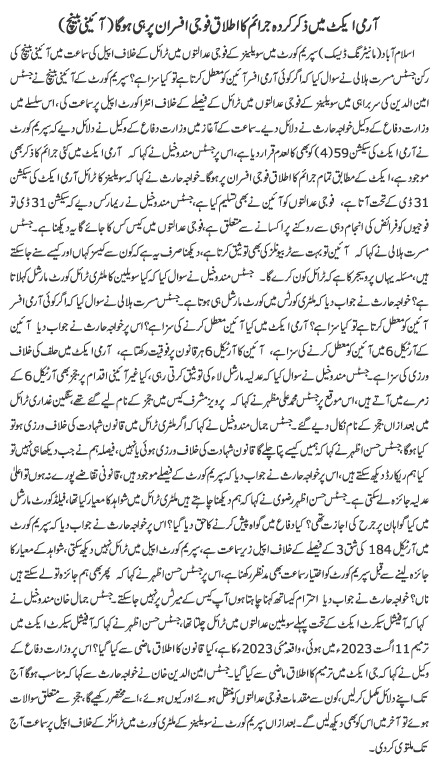 آرمی ایکٹ میں ذکر کردہ جرائم کا اطلاق فوجی افسران پر ہی ہوگا (آئینی بینچ)
اسلام آباد (مانیٹرنگ ڈیسک) سپریم کورٹ میں سویلینز کے فوجی عدالتوں میں ٹرائل کے خلاف اپیل کی سماعت میں آئینی بینچ کی
رکن جسٹس مسرت ہلالی نے سوال کیا کہ اگر کوئی آرمی افسر آئین کو معطل کرتا ہے تو کیا سزا ہے؟ جسٹس
امین الدین کی سربراہی میں سویلینز کے فوجی عدالتوں میں ٹرائل کے فیصلے کے خلاف انٹرا کورٹ اپیل پر سماعت کی، اس سلسلے میں
وزارت دفاع کے وکیل خواجہ حارث نے دلائل دیے۔ سماعت کے آغاز میں وزارت دفاع کے وکیل نے دلائل دیے کہ سپریم کورٹ
نے آرمی ایکٹ کی سیکشن 59(4) کو بھی کالعدم قرار دیا ہے، اس پر جسٹس مندوخیل نے کہا کہ آرمی ایکٹ میں کئی جرائم کا ذکر بھی
موجود ہے، ایکٹ کے مطابق تمام جرائم کا اطلاق فوجی افسران پر ہوگا۔ خواجہ حارث نے کہا کہ سویلینز کا ٹرائل آرمی ایکٹ کی سیکشن
31 ڈی کے تحت آتا ہے، فوجی عدالتوں کو آئین نے بھی تسلیم کیا ہے، جسٹس مندوخیل نے ریمارکس دیے کہ سیکشن 31 ڈی تو
فوجیوں کو فرائض کی انجام دہی سے روکنے پر اکسانے سے متعلق ہے، فوجی عدالتوں میں کیس کس کا جائے گا یہ دیکھنا ہے۔ جسٹس
مسرت ہلالی نے کہا کہ آئین تو بہت سے ٹربیونلز کی بھی توثیق کرتا ہے، دیکھنا صرف یہ ہے کہ کون سے کیسز کہاں اور کیسے سنے جاسکتے
ہیں، مسئلہ یہاں پروسیجر کا ہے کہ ٹرائل کون کرے گا۔ جسٹس مندوخیل نے سوال کیا کہ کیا سویلین کا ملٹری ٹرائل کورٹ مارشل کہلاتا
ہے؟ خواجہ حارث نے جواب دیا کہ ملٹری کورٹس میں کورٹ مارشل ہی ہوتا ہے۔ جسٹس مسرت ہلالی نے سوال کیا کہ اگر کوئی آرمی افسر
آئین کو معطل کرتا ہے تو کیا سزا ہے؟ آرمی ایکٹ میں کیا آئین معطل کرنے کی سزا ہے؟ اس پر خواجہ حارث نے جواب دیا آئین
کے آرٹیکل 6 میں آئین کو معطل کرنے کی سزا ہے، آئین کا آرٹیکل 6 ہر قانون پر فوقیت رکھتا ہے، آرمی ایکٹ میں حلف کی خلاف
ورزی کی سزا ہے۔ جسٹس مندوخیل نے سوال کیا کہ عدلیہ مارشل لاء کی توثیق کرتی رہی، کیا غیر آئینی اقدام پر ججز بھی آرٹیکل 6 کے
زمرے میں آتے ہیں، اس موقع پر جسٹس محمد علی مظہر نے کہا کہ پرویز مشرف کیس میں ججز کے نام لیے گئے تھے، سنگین غداری ٹرائل
میں بعد ازاں ججز کے نام نکال دیے گئے۔ جسٹس جمال مندوخیل نے کہا کہ اگر ملٹری ٹرائل میں قانون شہادت کی خلاف ورزی ہو تو
کیا ہوگا، جسٹس حسن اظہر نے کہا کہ ہمیں کیسے پتا چلے گا قانون شہادت کی خلاف ورزی ہوئی یا نہیں، فیصلہ ہم نے جب دیکھا ہی نہیں تو
کیا ہم ریکارڈ دیکھ سکتے ہیں، اس پر خواجہ حارث نے جواب دیا کہ سپریم کورٹ کے فیصلے موجود ہیں، قانونی تقاضے پورے نہ ہوں تو اعلیٰ
عدلیہ جائزہ لے سکتی ہے۔ جسٹس حسن اظہر رضوی نے کہا کہ ہم دیکھنا چاہتے ہیں ملٹری ٹرائل میں شواہد کا معیار کیا تھا، فیلڈ کورٹ مارشل
میں کیا گواہان پر جرح کی اجازت تھی؟ کیا دفاع میں گواہ پیش کرنے کا حق دیا گیا؟ اس پر خواجہ حارث نے جواب دیا کہ سپریم کورٹ
میں آرٹیکل 184 کی شق 3 کے فیصلے کے خلاف اپیل زیر سماعت ہے، سپریم کورٹ اپیل میں ٹرائل نہیں دیکھ سکتی، شواہد کے معیار کا
جائزہ لینے سے قبل سپریم کورٹ کو اختیار سماعت بھی مدنظر رکھنا ہے، اس پر جسٹس حسن اظہر نے کہا کہ پھر بھی ہم جائزہ تو لے سکتے ہیں
ناں؟ خواجہ حارث نے جواب دیا احترام کیساتھ کہنا چاہتا ہوں آپ کیس کے میرٹس پر نہیں جاسکتے۔ جسٹس جمال خان مندوخیل نے
کہا کہ آفیشل سیکرٹ ایکٹ کے تحت پہلے سویلین عدالتوں میں ٹرائل چلتا تھا، جسٹس حسن اظہر نے کہا کہ آفیشل سیکرٹ ایکٹ میں
ترمیم 11 اگست 2023ء میں ہوئی، واقعہ مئی 2023ء کا ہے، کیا قانون کا اطلاق ماضی سے کیا گیا؟ اس پر وزارت دفاع کے
وکیل نے کہا کہ جی ایکٹ میں ترمیم کا اطلاق ماضی سے کیا گیا۔ جسٹس امین الدین خان نے خواجہ حارث سے کہا کہ مناسب ہوگا آج
تک اپنے دلائل مکمل کرلیں، کون سے مقدمات فوجی عدالتوں کو منتقل ہوئے اور کیوں ہوئے، اسے مختصر رکھیے گا، ججز سے متعلق سوالات
ہوئے تو آخر میں اس کو بھی دیکھ لیں گے۔ بعد ازاں سپریم کورٹ نے سویلینز کے فوجی عدالتوں میں ٹرائلز کے خلاف اپیل پر سماعت آج
تک ملتوی کردی۔